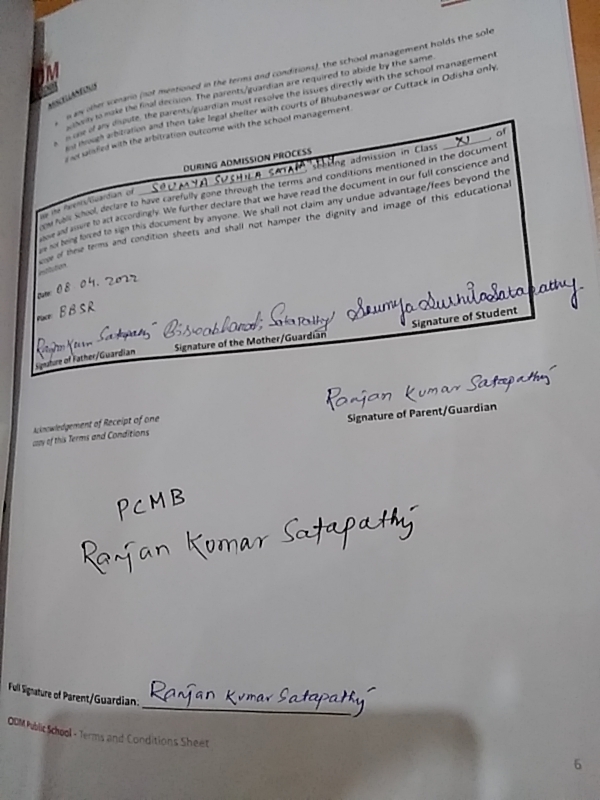 ODM
MISCELLANEOUS
In any other scenario (not mentioned in the terms and conditions), the school management holds the sole
authority to make the final decision. The parents/guardian are required to abide by the same.
In case of any dispute, the parents/guardian must resolve the issues directly with the school management
first through arbitration and then take legal shelter with courts of Bhubaneswar or Cuttack in Odisha only,
if not satisfied with the arbitration outcome with the school management.
DURING ADMISSION PROCESS
We the Parents/Guardian of SOUMYA SUSHILA SATAPATHY seeking admission in Class XI of
ODM Public School, declare to have carefully gone through the terms and conditions mentioned in the document
above and assure to act accordingly. We further declare that we have read the document in our full conscience and
are not being forced to sign this document by anyone. We shall not claim any undue advantage/fees beyond the
scope of these terms and condition sheets and shall not hamper the dignity and image of this educational
institution.
Date: 08.04.2022
Place: BBSR
Ranjan Kumar Satapathy Satapathy Soumya Sushila Satapathy
Signature of Father/Guardian Signature of the Mother/Guardian Signature of Student
Ranjan Kumar Satapathy
Signature of Parent/Guardian
Acknowledgement of Receipt of one
copy of this Terms and Conditions
PCMB
Ranjan Kumar Satapathy
Full Signature of Parent/Guardian: Ranjan Kumar Satapathy
ODM Public School - Terms and Conditions Sheet
6